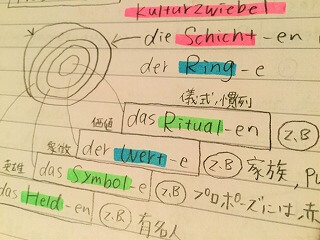 kulturzwiebel
die Schicht-en
der Ring-e
儀式,慣列
das Ritual-en z.B
価値
der Wert-e z.B 家族,
das Symbol-e z.B プロポーズには,赤
英雄
das Held-en z.B 有名人